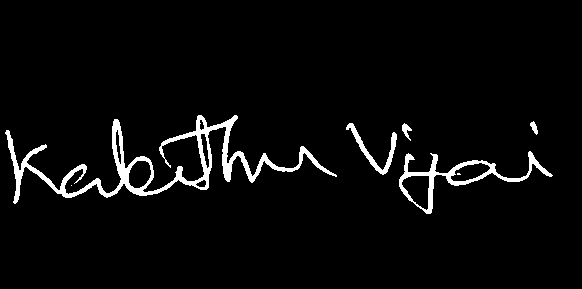 Kabithu Vijai